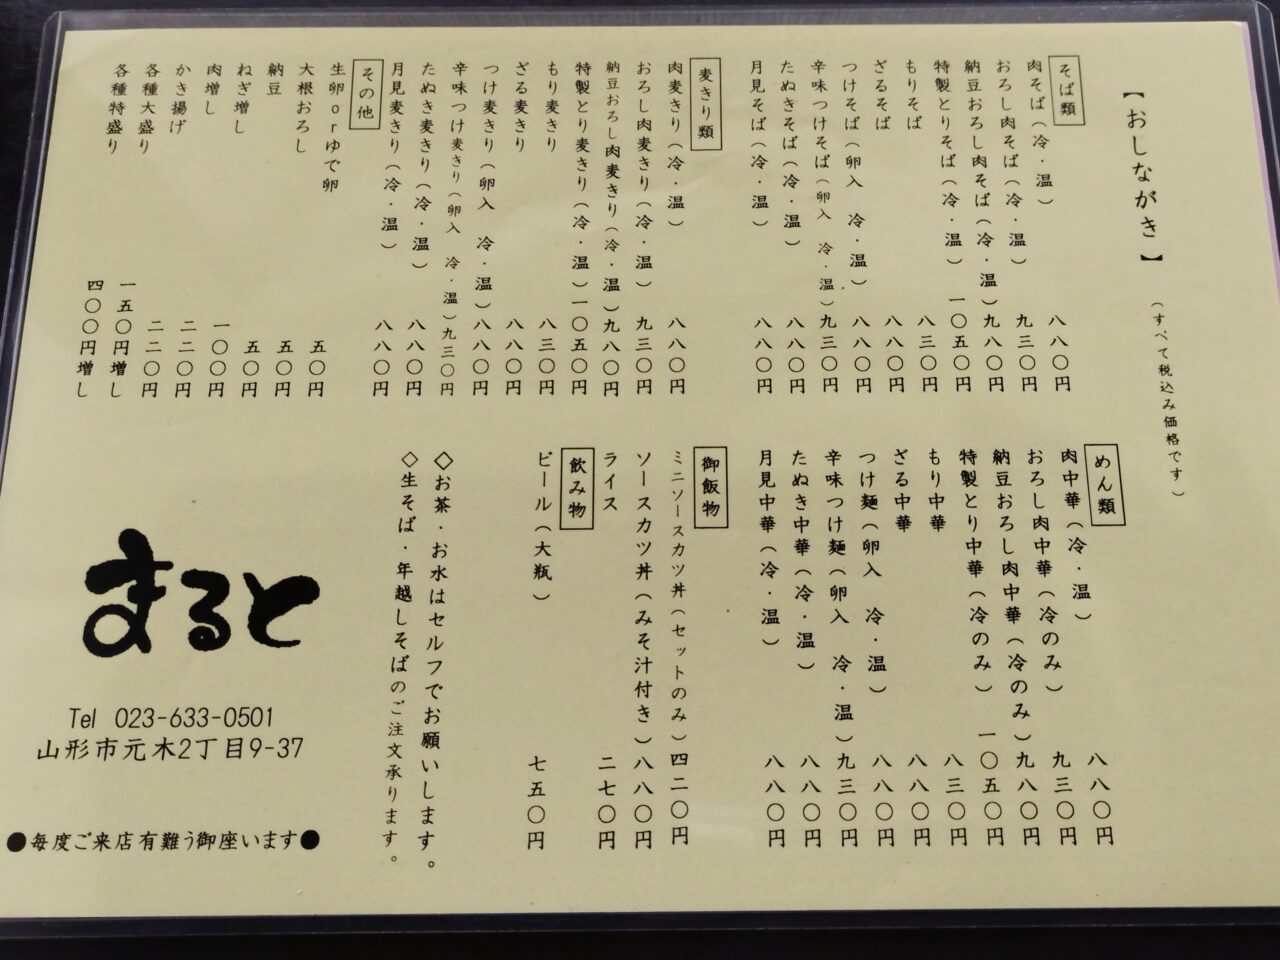 【おしながき】
(すべて税込み価格です)
そば類
肉そば(冷・温) 八八〇円
おろし肉そば(冷・温) 九三〇円
納豆おろし肉そば(冷・温) 九八〇円
特製とりそば(冷・温) 一〇五〇円
もりそば 八三〇円
ざるそば 八八〇円
つけそば(卵入 冷・温) 八八〇円
辛味つけそば(卵入 冷・温) 九三〇円
たぬきそば(冷・温) 八八〇円
月見そば(冷・温) 八八〇円
麦きり類
肉麦きり(冷・温) 八八〇円
おろし肉麦きり(冷・温) 九三〇円
納豆おろし肉麦きり(冷・温) 九八〇円
特製とり麦きり(冷・温) 一〇五〇円
もり麦きり 八三〇円
ざる麦きり 八八〇円
つけ麦きり(卵入 冷・温) 八八〇円
辛味つけ麦きり(卵入 冷・温) 九三〇円
たぬき麦きり(冷・温) 八八〇円
月見麦きり(冷・温) 八八〇円
その他
生卵orゆで卵 五〇円
大根おろし 五〇円
納豆 五〇円
ねぎ増し 一〇〇円
肉増し 二二〇円
かき揚げ 二二〇円
各種大盛り 一五〇円増し
各種特盛り 四〇〇円増し
めん類
肉中華(冷・温) 八八〇円
おろし肉中華(冷のみ) 九三〇円
納豆おろし肉中華(冷のみ) 九八〇円
特製とり中華(冷のみ) 一〇五〇円
もり中華 八三〇円
ざる中華 八八〇円
つけ麺(卵入 冷・温) 八八〇円
辛味つけ麺(卵入 冷・温) 九三〇円
たぬき中華(冷・温) 八八〇円
月見中華(冷・温) 八八〇円
御飯物
ミニソースカツ丼(セットのみ) 四二〇円
ソースカツ丼(みそ汁付き) 八八〇円
ライス 二七〇円
飲み物
ビール(大瓶) 七五〇円
◇お茶・お水はセルフでお願いします。
◇生そば・年越しそばのご注文承ります。
まると
Tel 023-633-0501
山形市元木2丁目9-37
●毎度ご来店有難う御座います●